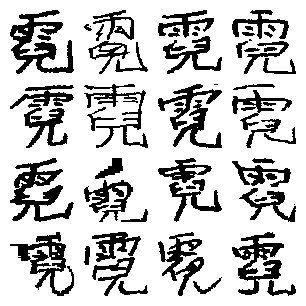 霓霓霓霓
霓霓霓霓
霓霓霓霓
霓霓霓霓